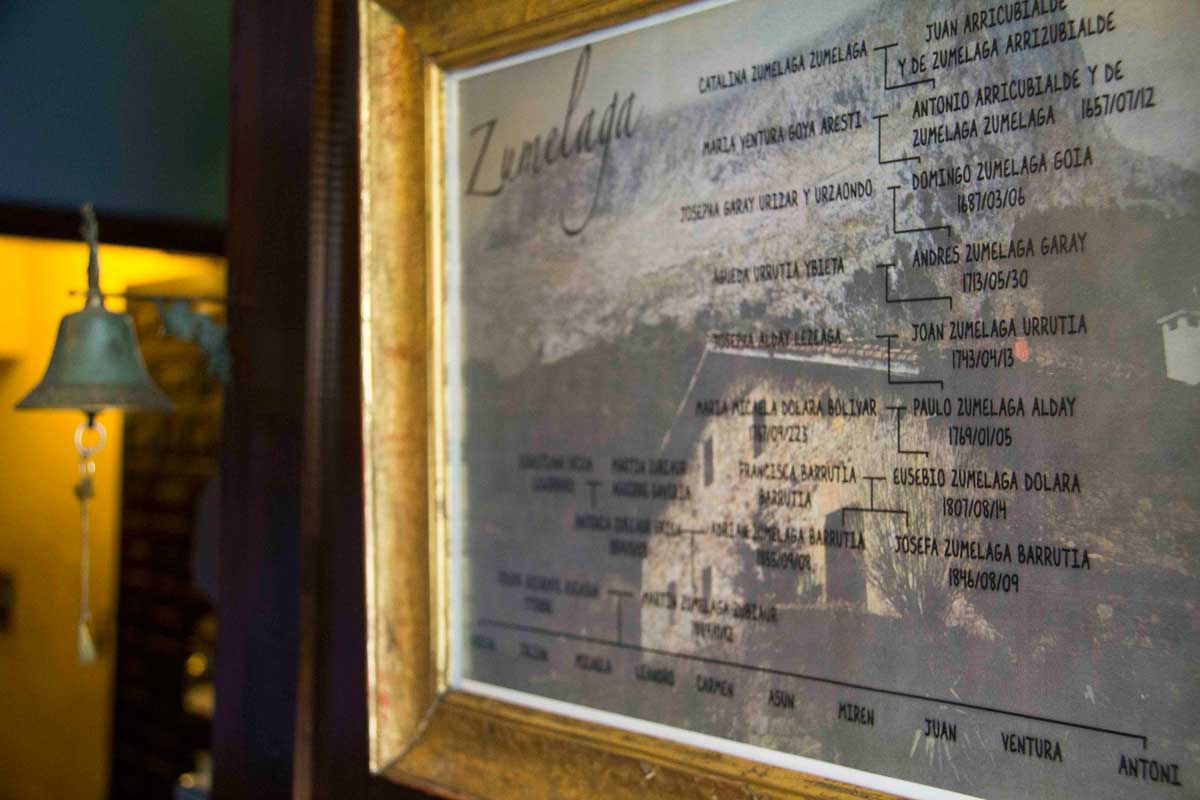 Zumelaga
JUAN ARRICUBIALDE
CATALINA ZUMELAGA ZUMELAGA
Y DE ZUMELAGA ARRIZUBIALDE
ANTONIO ARRICUBIALDE Y DE
MARIA VENTURA GOYA ARESTI
ZUMELAGA ZUMELAGA 1657/07/12
JOSEPHA GARAY URIZAR Y URZAONDO
DOMINGO ZUMELAGA GOIA
1687/03/06
AGUEDA URRUTIA YBIETA
ANDRES ZUMELAGA GARAY
1713/05/30
JOSEPHA ALDAY LEZEAGA
JOAN ZUMELAGA URRUTIA
1743/04/13
MARIA MICAELA DOLARA BOLIVAR
PAULO ZUMELAGA ALDAY
1769/01/05
FRANCISCA BARRUTIA
BARRUTIA
EUSEBIO ZUMELAGA DOLARA
1807/08/14
ADRIAN ZUMELAGA BARRUTIA
JOSEFA ZUMELAGA BARRUTIA
1846/08/09
MARTIN ZUMELAGA ZUBIAUR
MICAELA LEANDRO CARMEN ASUN MIREN JUAN VENTURA ANTONI